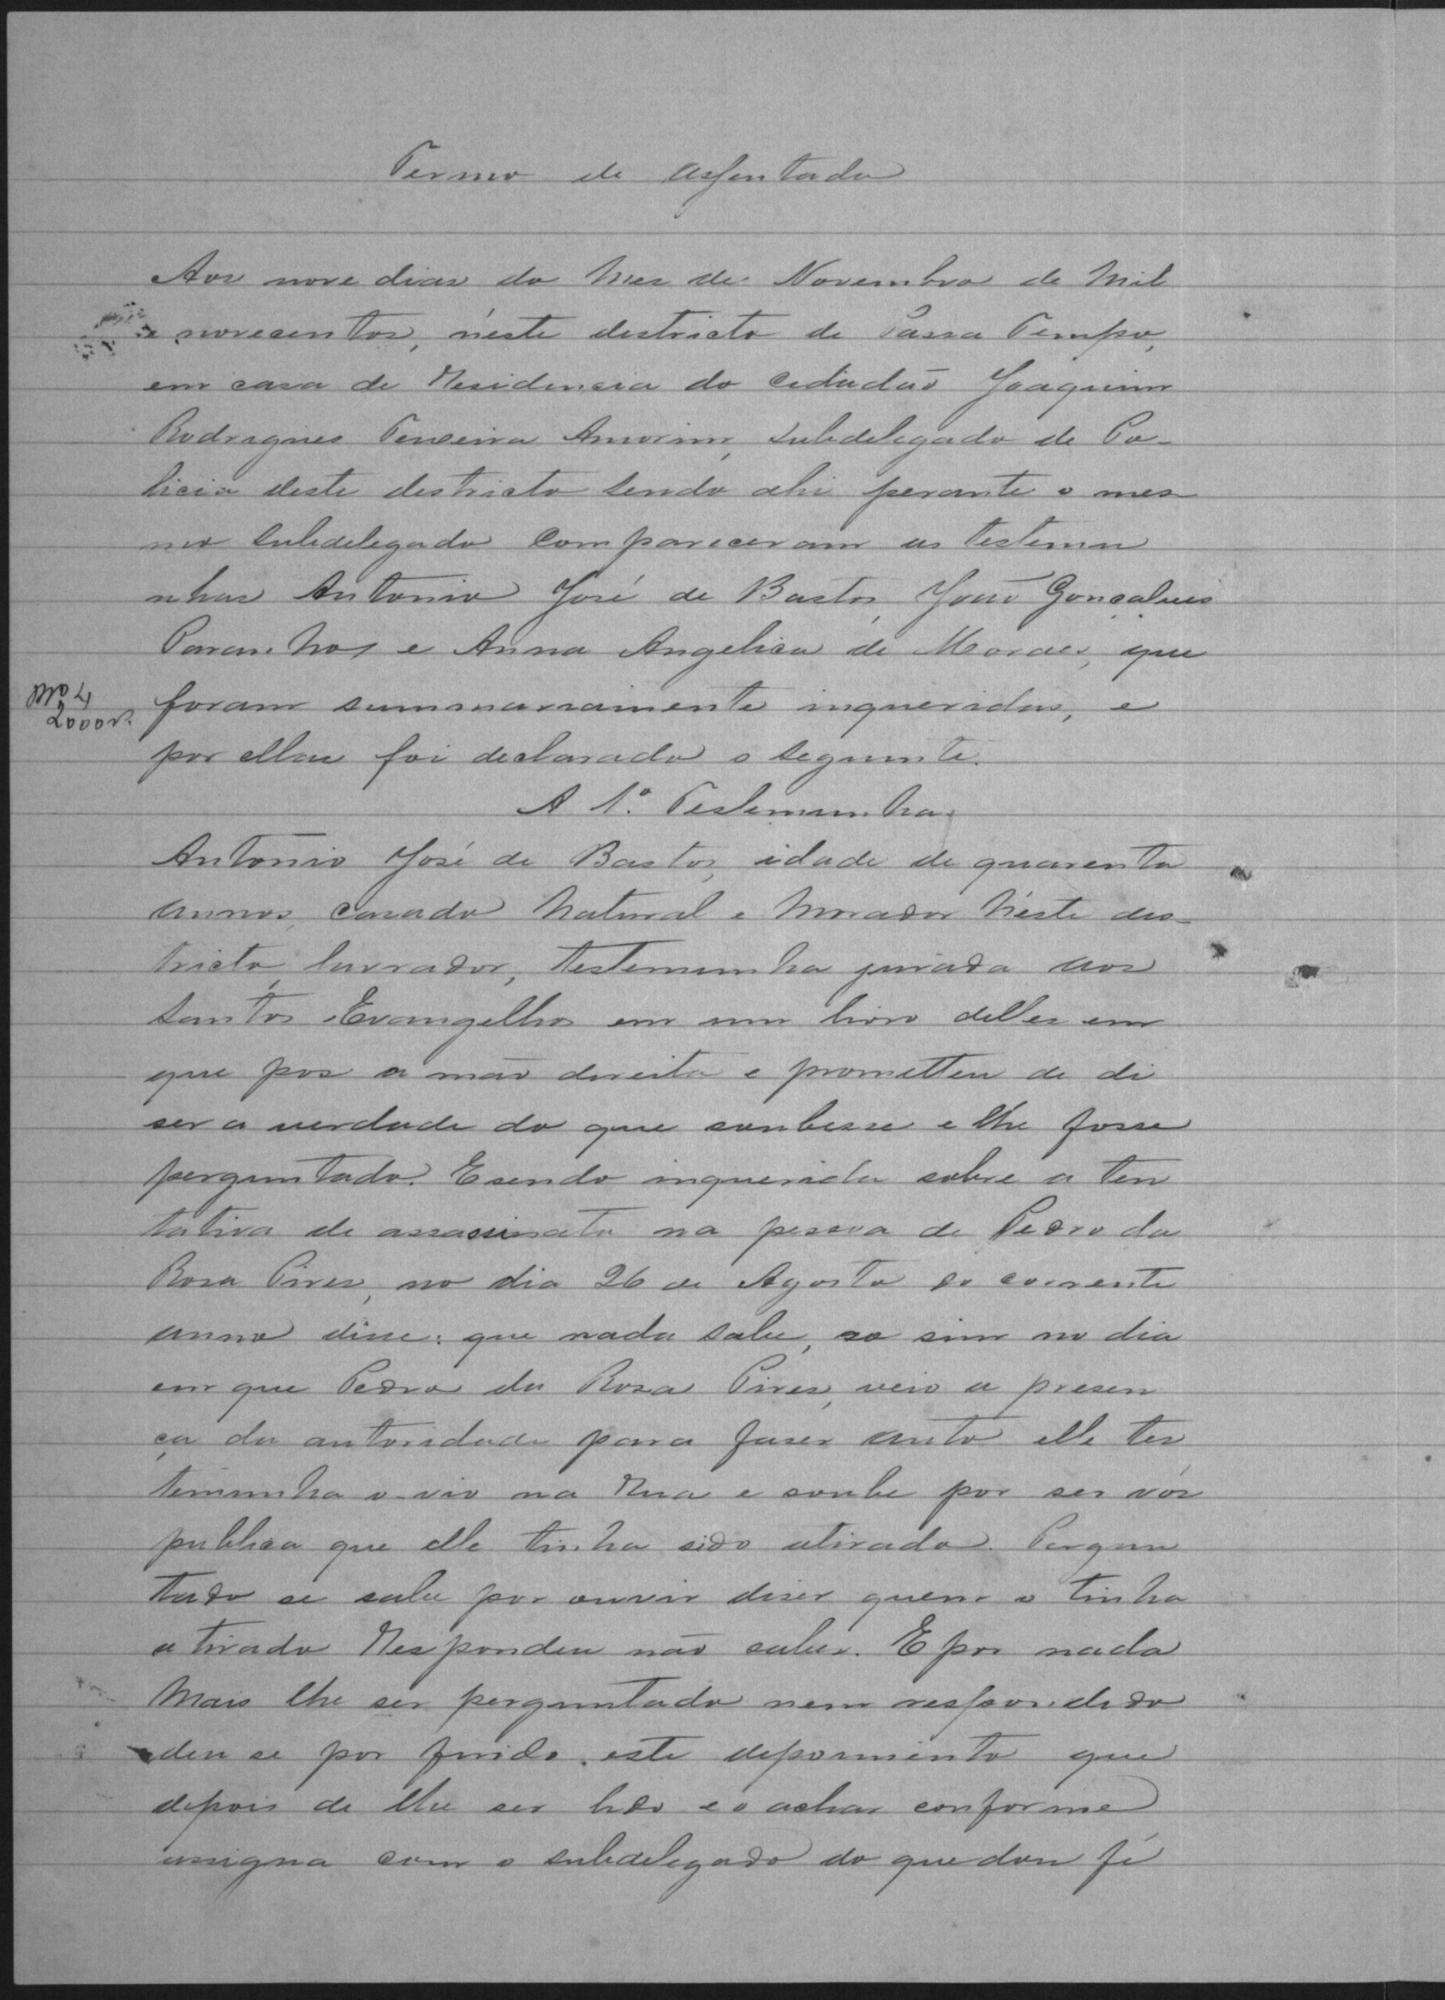 Termo de assentada
Aos nove dias do Mes de Novembro de Mil
e novecentos, n'este destricto de Passa Tempo,
em casa de Residencia do Cidadão Joaquim
Rodrigues Teixeira Amorim, Subdelegado de Po-
licia deste destricto sendo ahi perante o mes
mo Subdelegado Compareceram as testemu
nhas Antonio José de Bastos, João Gonçalves
Paranhos e Anna Angelica de Moraes, que
foram summariamente inqueridas, e
2000
por ellas foi declarado o seguinte.
A 1ª Testemunha
Antonio José de Bastos, idade de quarenta
annos, casado Natural e Morador N'este des-
tricto, lavrador, testemunha jurada aos
Santos Evangelhos em um livro delles em
que pos a mão direita e prometteu de di
ser a verdade do que soubesse e lhe fosse
perguntado. E sendo inquerida sobre a ten
tativa de assassinato na pessoa de Pedro da
Rosa Pires, no dia 26 de Agosto do corrente
anno disse: que nada sabe, so sim no dia
em que Pedro da Rosa Pires, veio a presen
ça da autoridade para faser auto elle tes
temunha o vio na Rua e soube por ser vós
publica que elle tinha sido atirado. Pergun
tado se sabe por ouvir diser quem o tinha
atirado Respondeu não saber. E por nada
Mais lhe ser perguntado nem respondido
deu se por findo este depoimento que
depois de lhe ser lido e o achar conforme
assigna com o subdelegado do que dou fé